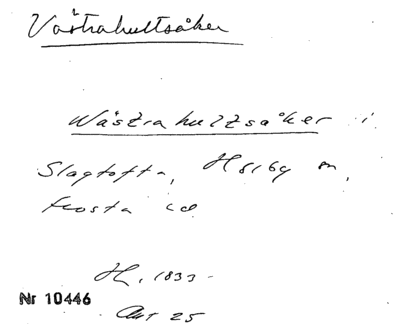 Västrahultsåker
Wästrahultzsåker i
Slagtofta, Hörby sn,
Frosta hd
H. 1833
Nr 10446
Akt 25